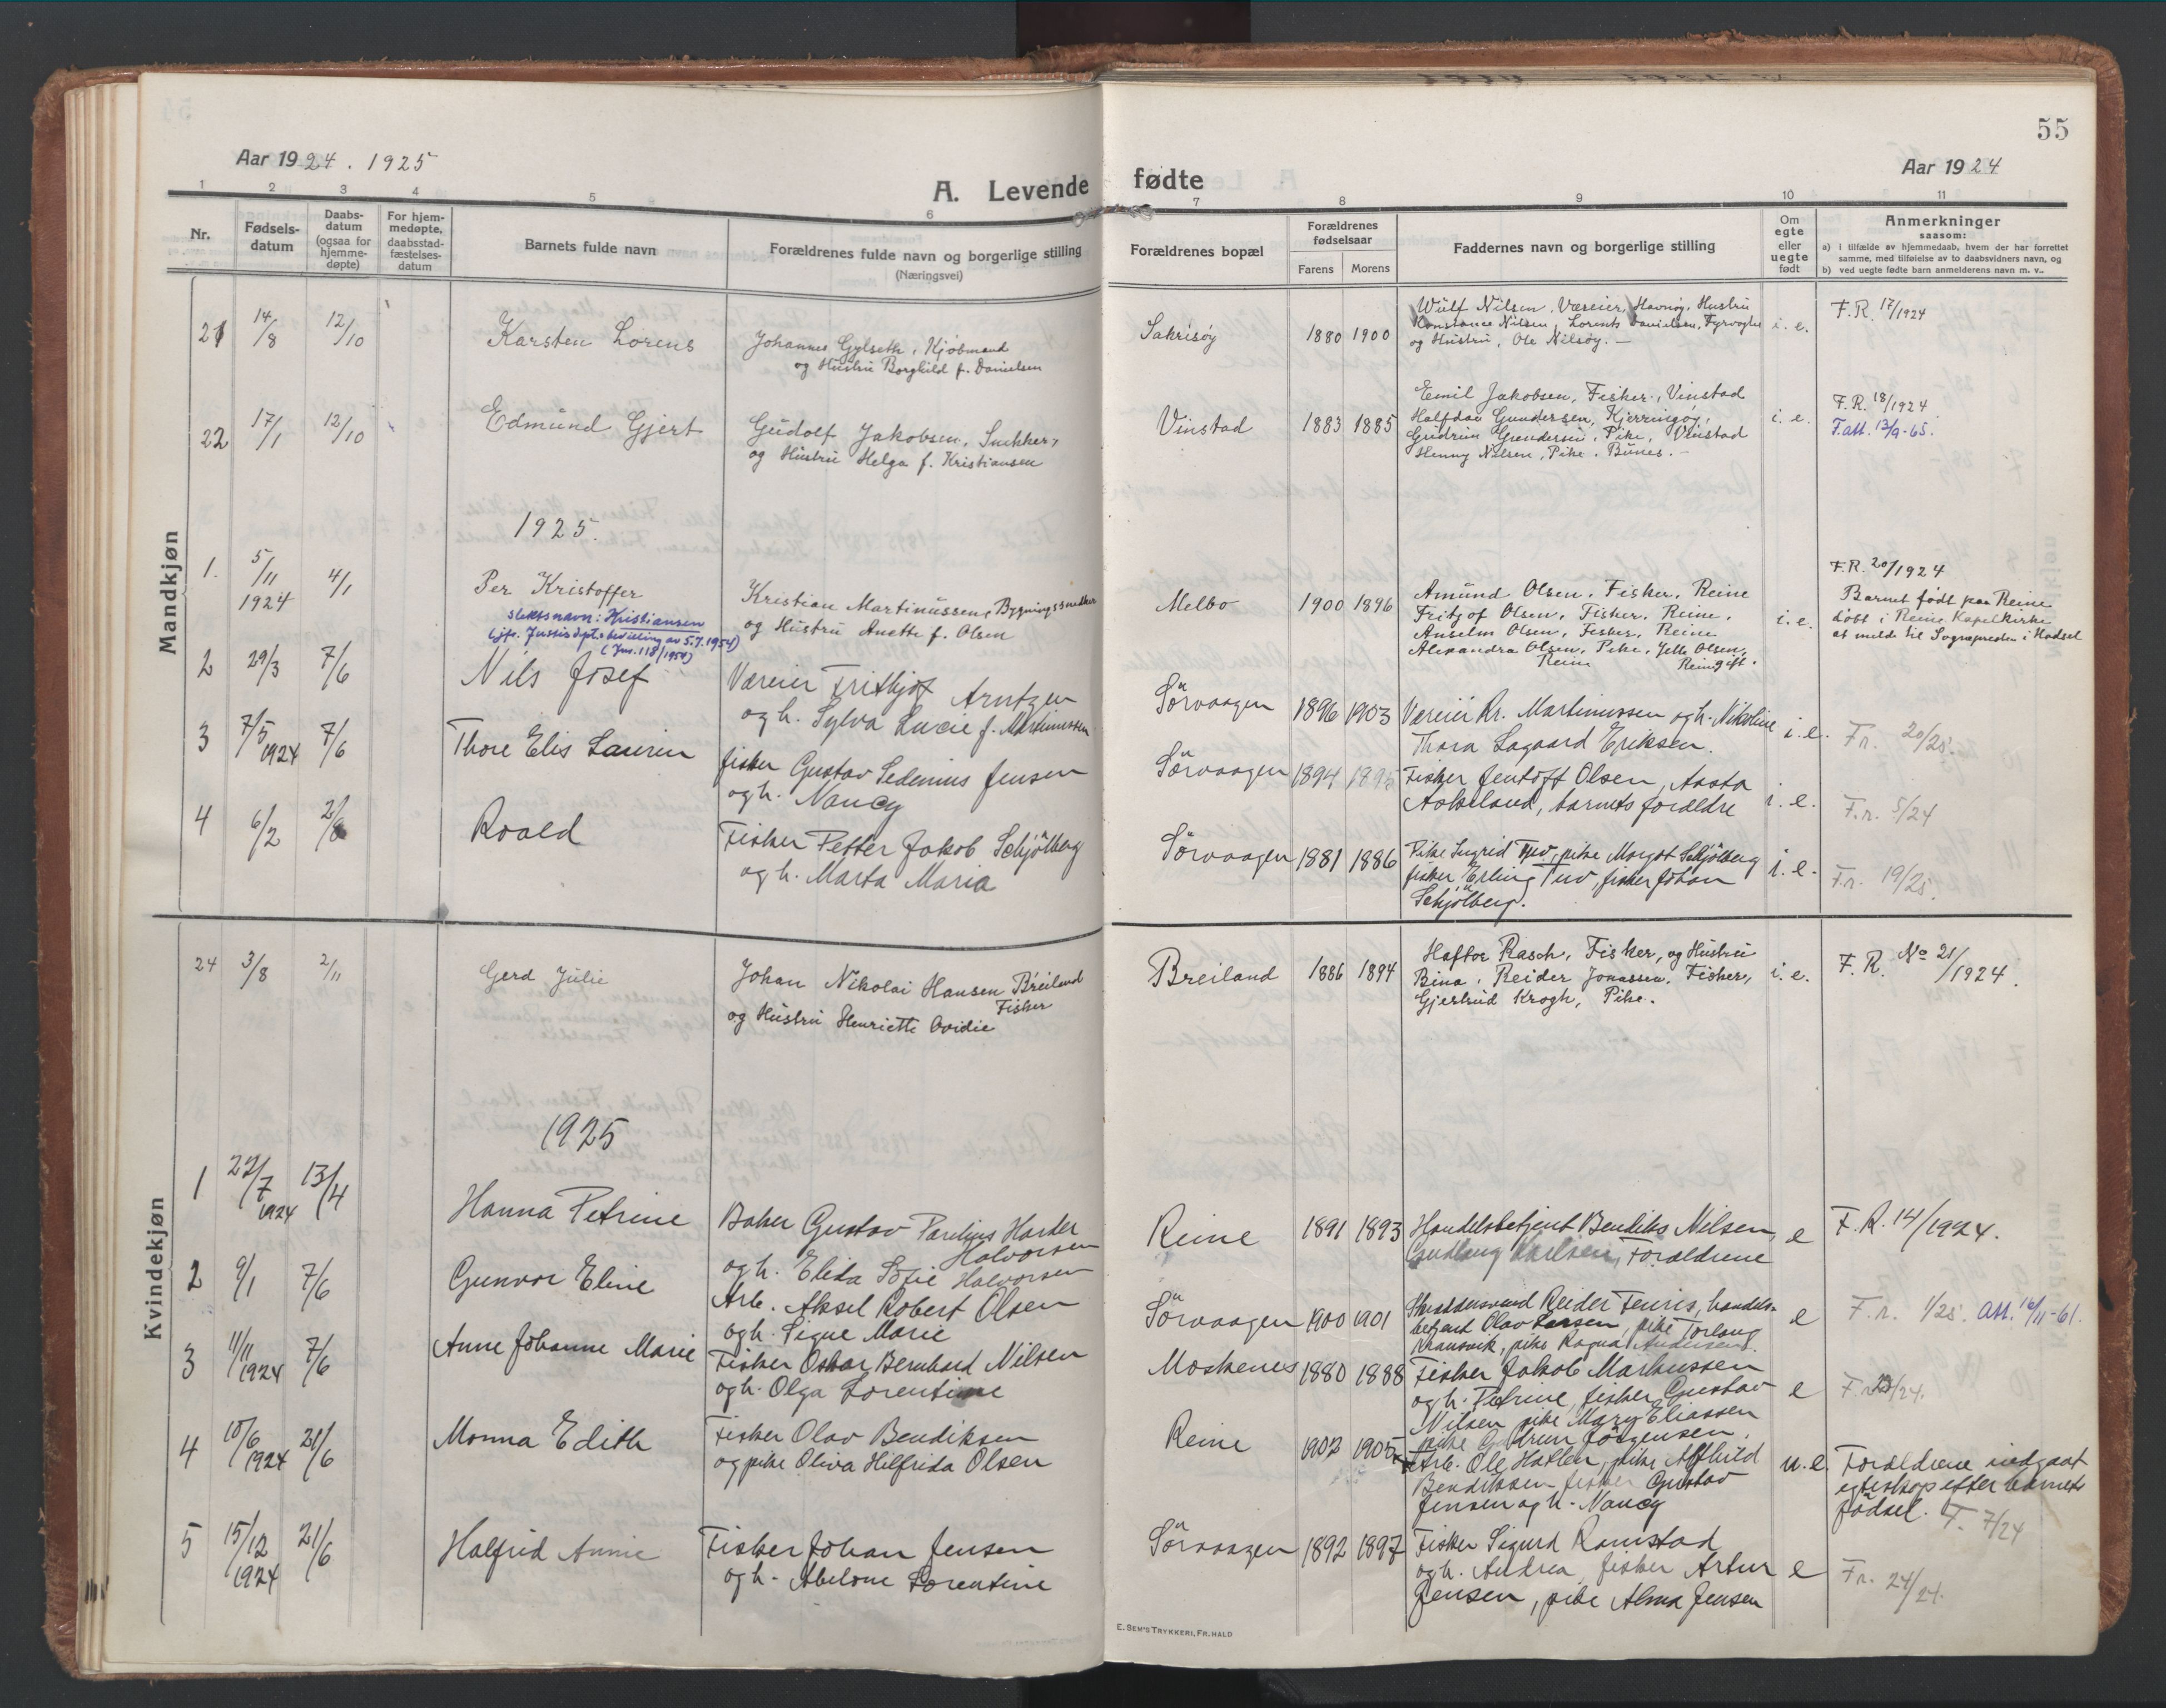 55
Aar 1924. 1925
A. Levende fødte
Aar 1924
1 2 3 4 5 6 7 8 9 10 11
Nr.
Fødsels-
datum
Daabs-
datum
(ogsaa for
hjemme-
døpte)
For hjem-
medøpte,
daabsstad-
fæstelses-
datum
Barnets fulde navn
Forældrenes fulde navn og borgerlige stilling
(Næringsvei)
Forældrenes bopæl
Forældrenes
fødselsaar
Farens Morens
Faddernes navn og borgerlige stilling
Om
egte
eller
uegte
født
Anmerkninger
saasom:
a) i tilfælde av hjemmedaab, hvem der har forrettet
samme, med tilføielse av to daabsvidners navn, og
b) ved uegte fødte barn anmelderens navn m. v..
Mandkjøn
21 14/8 12/10 Karsten Lorens
Johannes Gylseth, Kjöbmand
og Hustru Borghild f. Danielsen
Sakrisöy 1880 1900
Wulf Nilsen, Væreier, Havnöy, Hustru
Konstance Nilsen, Lorents Danielsen, Fyrvogter
og Hustru, Ole Nilsöy. —
i. e.
F.R. 17/1924
22 17/1 12/10 Edmund Gjert
Gudolf Jakobsen, Snekker,
og Hustru Helga f. Kristiansen
Vinstad 1883 1885
Emil Jakobsen, Fisker, Vinstad
Halfdan Gundersen, Kjerringöy,
Gudrun Gundersen, Pike, Vinstad
Henny Nilsen, Pike, Bunes. —
i. e.
F.R. 18/1924
F.att. 13/9-65.
1925.
1. 5/11 1924 4/1 Per Kristoffer
slektsnavn: Kristiansen
(jfr. Jussisdpt.s bevilling av 5.7.1954)
(Jnr. 118/1954)
Kristian Martinussen, Bygningssnedker
og Hustru Anette f. Olsen
Melbo 1900 1896
Amund Olsen, Fisker, Reine
Fritjof Olsen, Fisker, Reine,
Anselm Olsen, Fisker, Reine
Alexandra Olsen, Pike, Jelle Olsen,
Reine Reine gift.
i. e.
F.R. 20/1924
Barnet født paa Reine
døbt i Reine Kapelkirke
at melde til Sognepresten i Hadsel
2 29/3 7/6 Nils Josef
Væreier Frithjof Arntzen
og h. Sylva Lucie f. Martinussen
Sörvaagen 1896 1903
Væreier Kr. Martinussen og h. Nikoline
Thora Sagaard Eriksen.
i. e.
F.r. 20/25.
3 7/5 1924 7/6 Thore Elis Laurin
fisker Gustav Sedenius Jensen
og h. Nancy
Sörvaagen 1894 1895
Fisker Jentoft Olsen, Aasta
Aakeland, barnets forældre
i. e.
F.r. 5/24
4 6/2 2/8 Roald
Fisker Petter Jakob Schjölberg
og h. Marta Maria
Sörvaagen 1881 1886
Pike Ingrid Tuv, pike Margot Schjölberg
fisker Erling Tuv, fisker Johan
Schjölberg.
i. e.
F.r. 19/25.
Kvindekjøn
24 3/8 2/11 Gerd Julie
Johan Nikolai Hansen Breiland
Fisker
og Hustru Henriette Ovidie
Breiland 1886 1894
Haftor Rasch, Fisker, og Hustru
Bina, Reider Jonassen, Fisker,
Gjertrud Krogh, Pike.
i. e.
F.R. No 21/1924.
1925
1 22/7 1924 13/4 Hanna Petrine
Baker Gustav Paulius Harder
Halvorsen
og h. Elida Sofie Halvorsen
Reine 1891 1893
Handelsbetjent Bendiks Nilsen,
Gudlaug Karlsen, Forældrene
e
F.R. 14/1924.
2 9/1 7/6 Gunvor Eline
Arb. Aksel Robert Olsen
og h. Signe Marie
Sörvaagen 1900 1901
Skræddersvend Reider Feuris, handels-
betjent Olav Larsen, pike Torlaug
Kransvik, pike Ragna Andersens.
e
F.r. 1/25. Att. 16/11-61.
3 11/11 1924 7/6 Anne Johanne Marie
Fisker Oskar Bernhard Nilsen
og h. Olga Lorentine
Moskenes 1880 1888
Fisker Jakob Markussen
og h. Petrine, fisker Gustav
Nilsen pike Mary Eliassen
pike Gudrun Jörgensen.
e
F.r. 23/24.
4 10/6 1924 21/6 Monna Edith
Fisker Olav Bendiksen
og pike Oliva Hilfrida Olsen
Reine 1902 1905
Arb. Ole Hatlen, pike Alfhild
Bendiksen fisker Gustav
Jensen og h. Nancy
u.e.
Forældrene indgaat
egteskap efter barnets
fødsel. F. 7/24
5 15/12 1924 21/6 Halfrid Annie
Fisker Johan Jensen
og h. Abelone Lorentine
Sörvaagen 1892 1897
Fisker Sigurd Ramstad
og h. Andrea, fisker Artur
Jensen, pike Alma Jensen
e
F.r. 24/24.
E. SEM'S TRYKKERI, FR.HALD